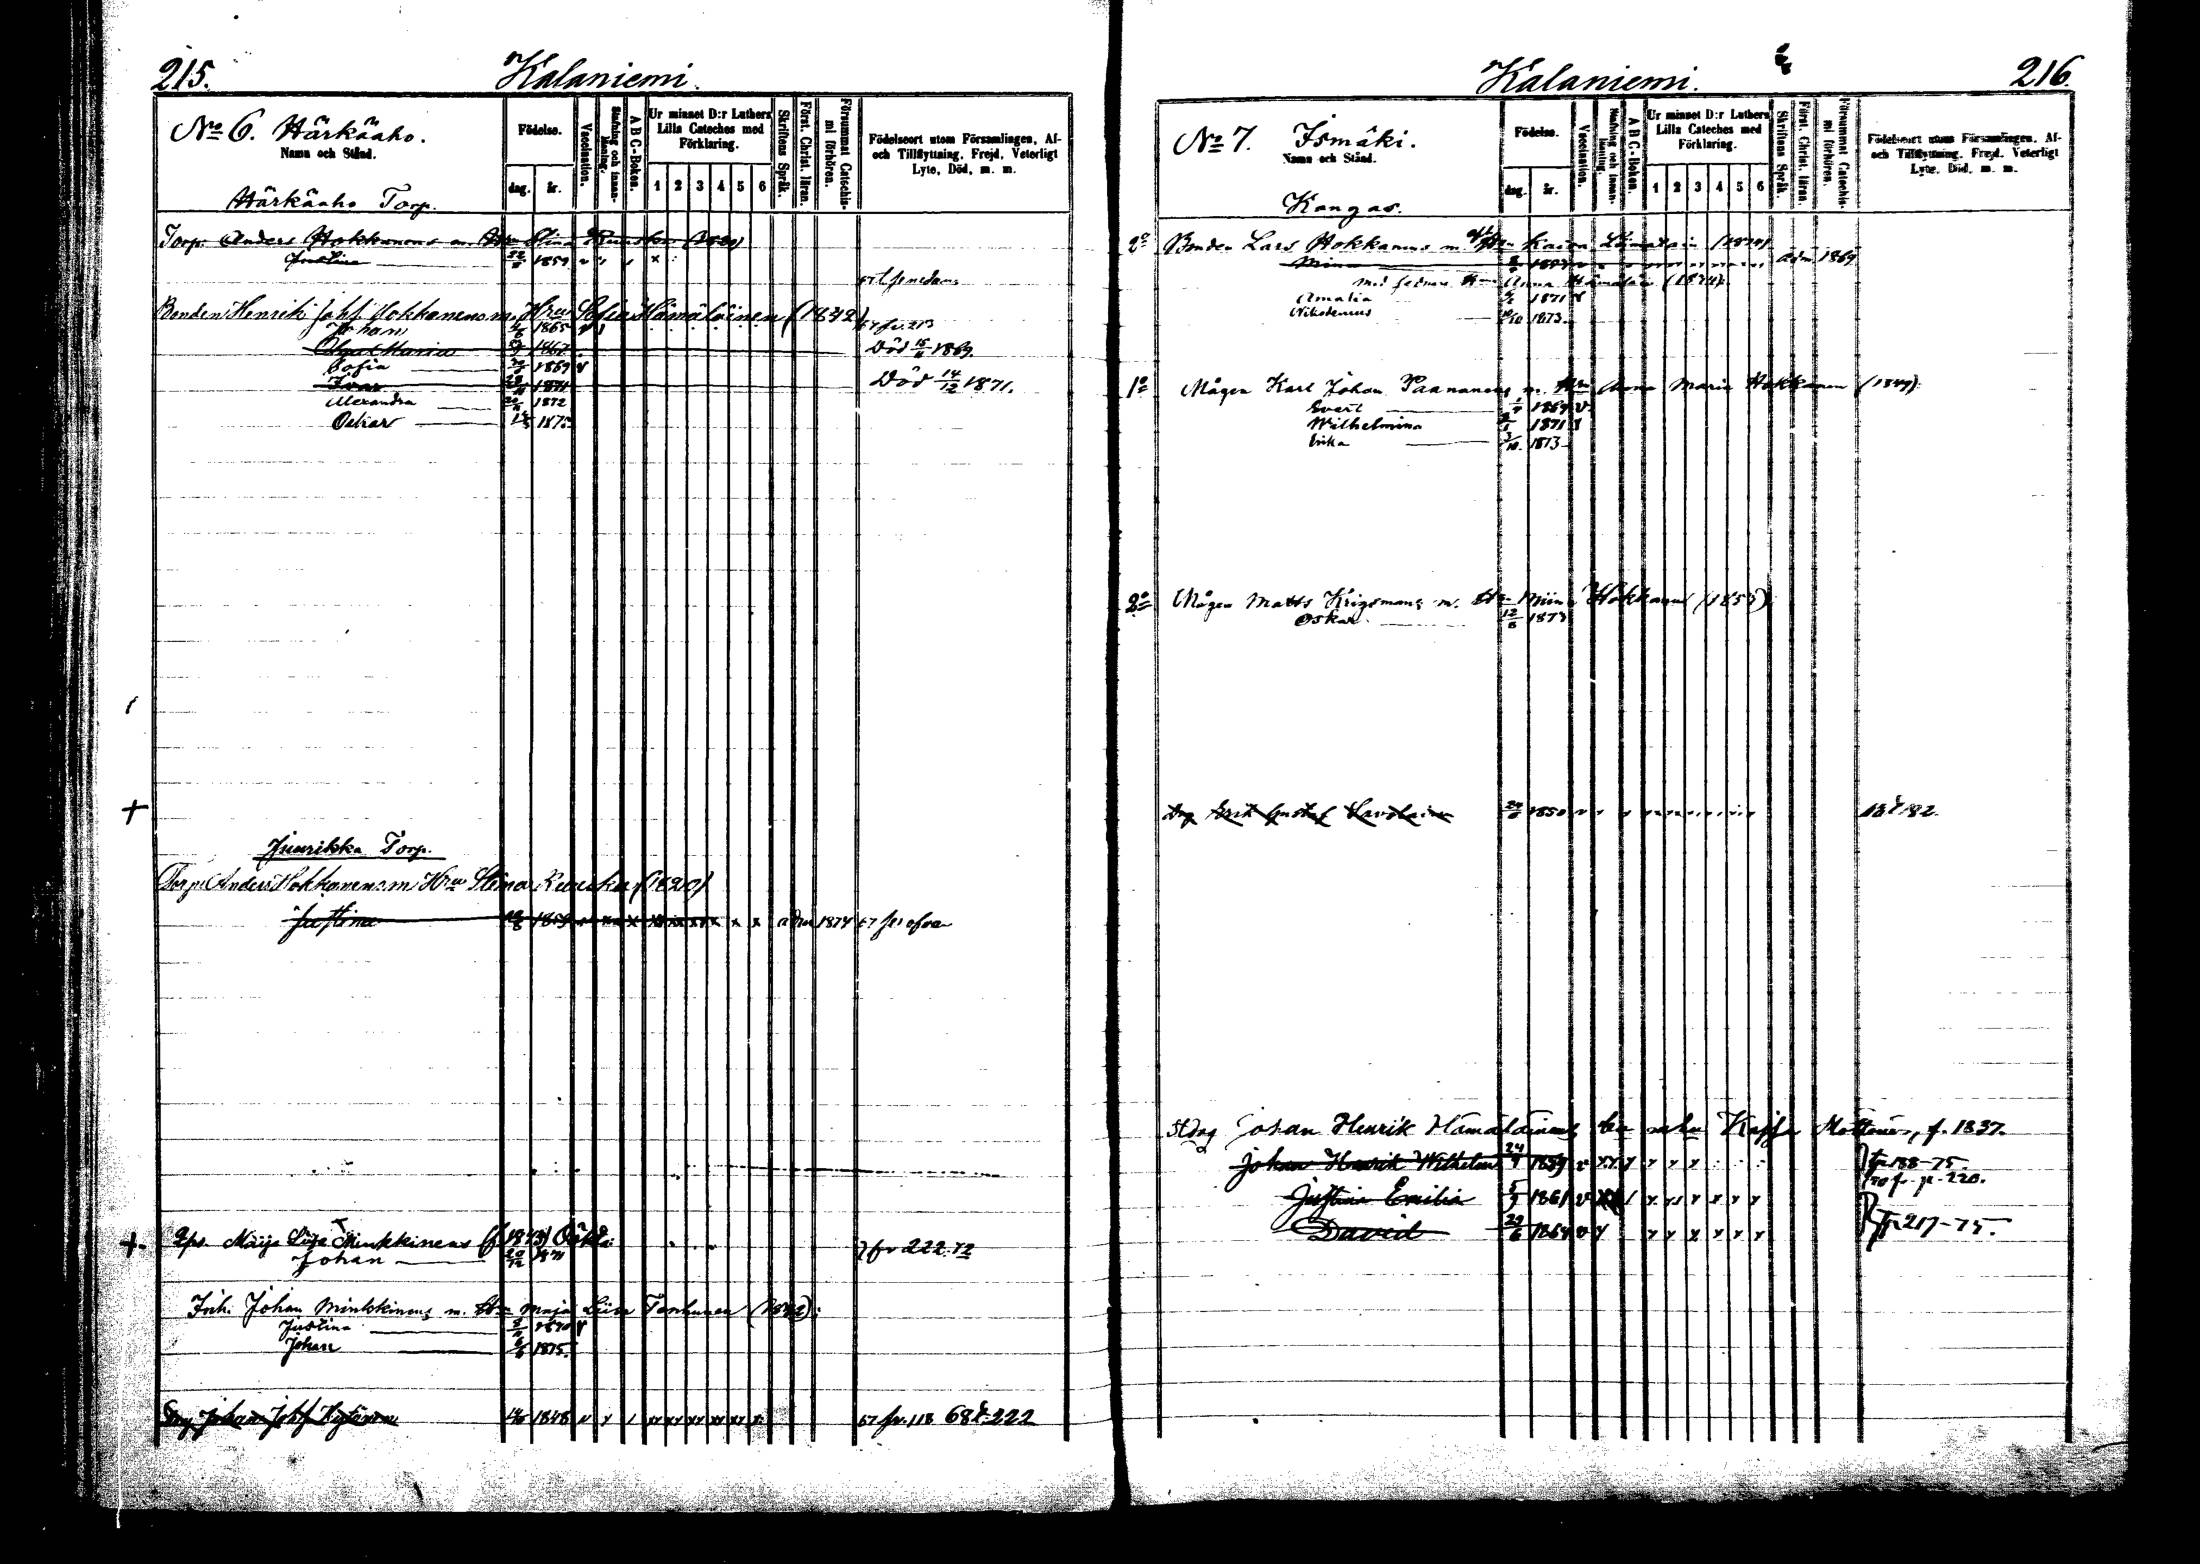 215.
Kalaniemi.
No 6. Härkäaho.
Namn och Stånd.
Härkäaho Torp.
Födelse.
dag. år.
Vaccination.
Stafning och innanläsning.
A B C-Boken.
Ur minnet D:r Luthers Lilla Cateches med Förklaring.
1 2 3 4 5 6
Skriftens Språk.
Först. Christ. läran.
Försummat Catechismi förhören.
Födelseort utom Församlingen, Af- och Tillflyttning, Frejd, Veterligt Lyte, Död, m. m.
Torp. Anders Hokkanens m. Hru Stina Ruuska (1820)
Justina 1859
67 t. f. nedan
Bonden Henrik Johf Hokkanens m. Hru Sofia Hämäläinen (1832)
Johan 1865 67 fr. 213
Olga Maria 1867 Död 15/11 1869.
Sofia 1869
Ivar 1871 Död 14/12 1871.
Alexandra 1872
Oskar 1875
Juurikka Torp.
Torp. Anders Hokkanens m Hru Stina Ruuska (1820)
Justina 1859 adm 1874 67 fr ofvan
Gps. Maija Liisa Minkkinens (f. 1843) Oäkta:
Johan 20/12 1871
fr 222.72
Inh. Johan Minkkinens m. Hru Maja Liisa Tanhunen (1842):
Justina 1870
Johan 1875.
Drg Johan Johf Hytönen 1848 67 fr. 118 68 t. 222
Kalaniemi.
216.
No 7. Ismäki.
Namn och Stånd.
Kangas.
Födelse.
dag. år.
Vaccination.
Stafning och innanläsning.
A B C-Boken.
Ur minnet D:r Luthers Lilla Cateches med Förklaring.
1 2 3 4 5 6
Skriftens Språk.
Först. Christ. läran.
Försummat Catechismi förhören.
Födelseort utom Församlingen, Af- och Tillflyttning, Frejd, Veterligt Lyte, Död, m. m.
2o Bonden Lars Hokkanens m. Hru Kaisa
Mina 1853 adm 1869
med sednare Hru Anna Hämäläin (1874)
Amalia 1871
Nikodemus 1873.
1o Mågen Karl Johan Paananens m. Hru Anna Maria Hokkanen (1849):
Evert 1869
Wilhelmina 1871
Erika 1873
2o Mågen Matts Krigsmans m. Hru Miina Hokkanen (1853)
Oskar 12/8 1873
Drg Erik Gustaf Savolain 1850
Stdrg Johan Henrik Hämäläinens Kajsa Möttönen, f. 1837.
Johan Henrik Wilhelm 24/4 1859 fr 188-75.
Justina Emilia 1861 70 fr p. 220.
David 29/6 1864 fr 217-75.